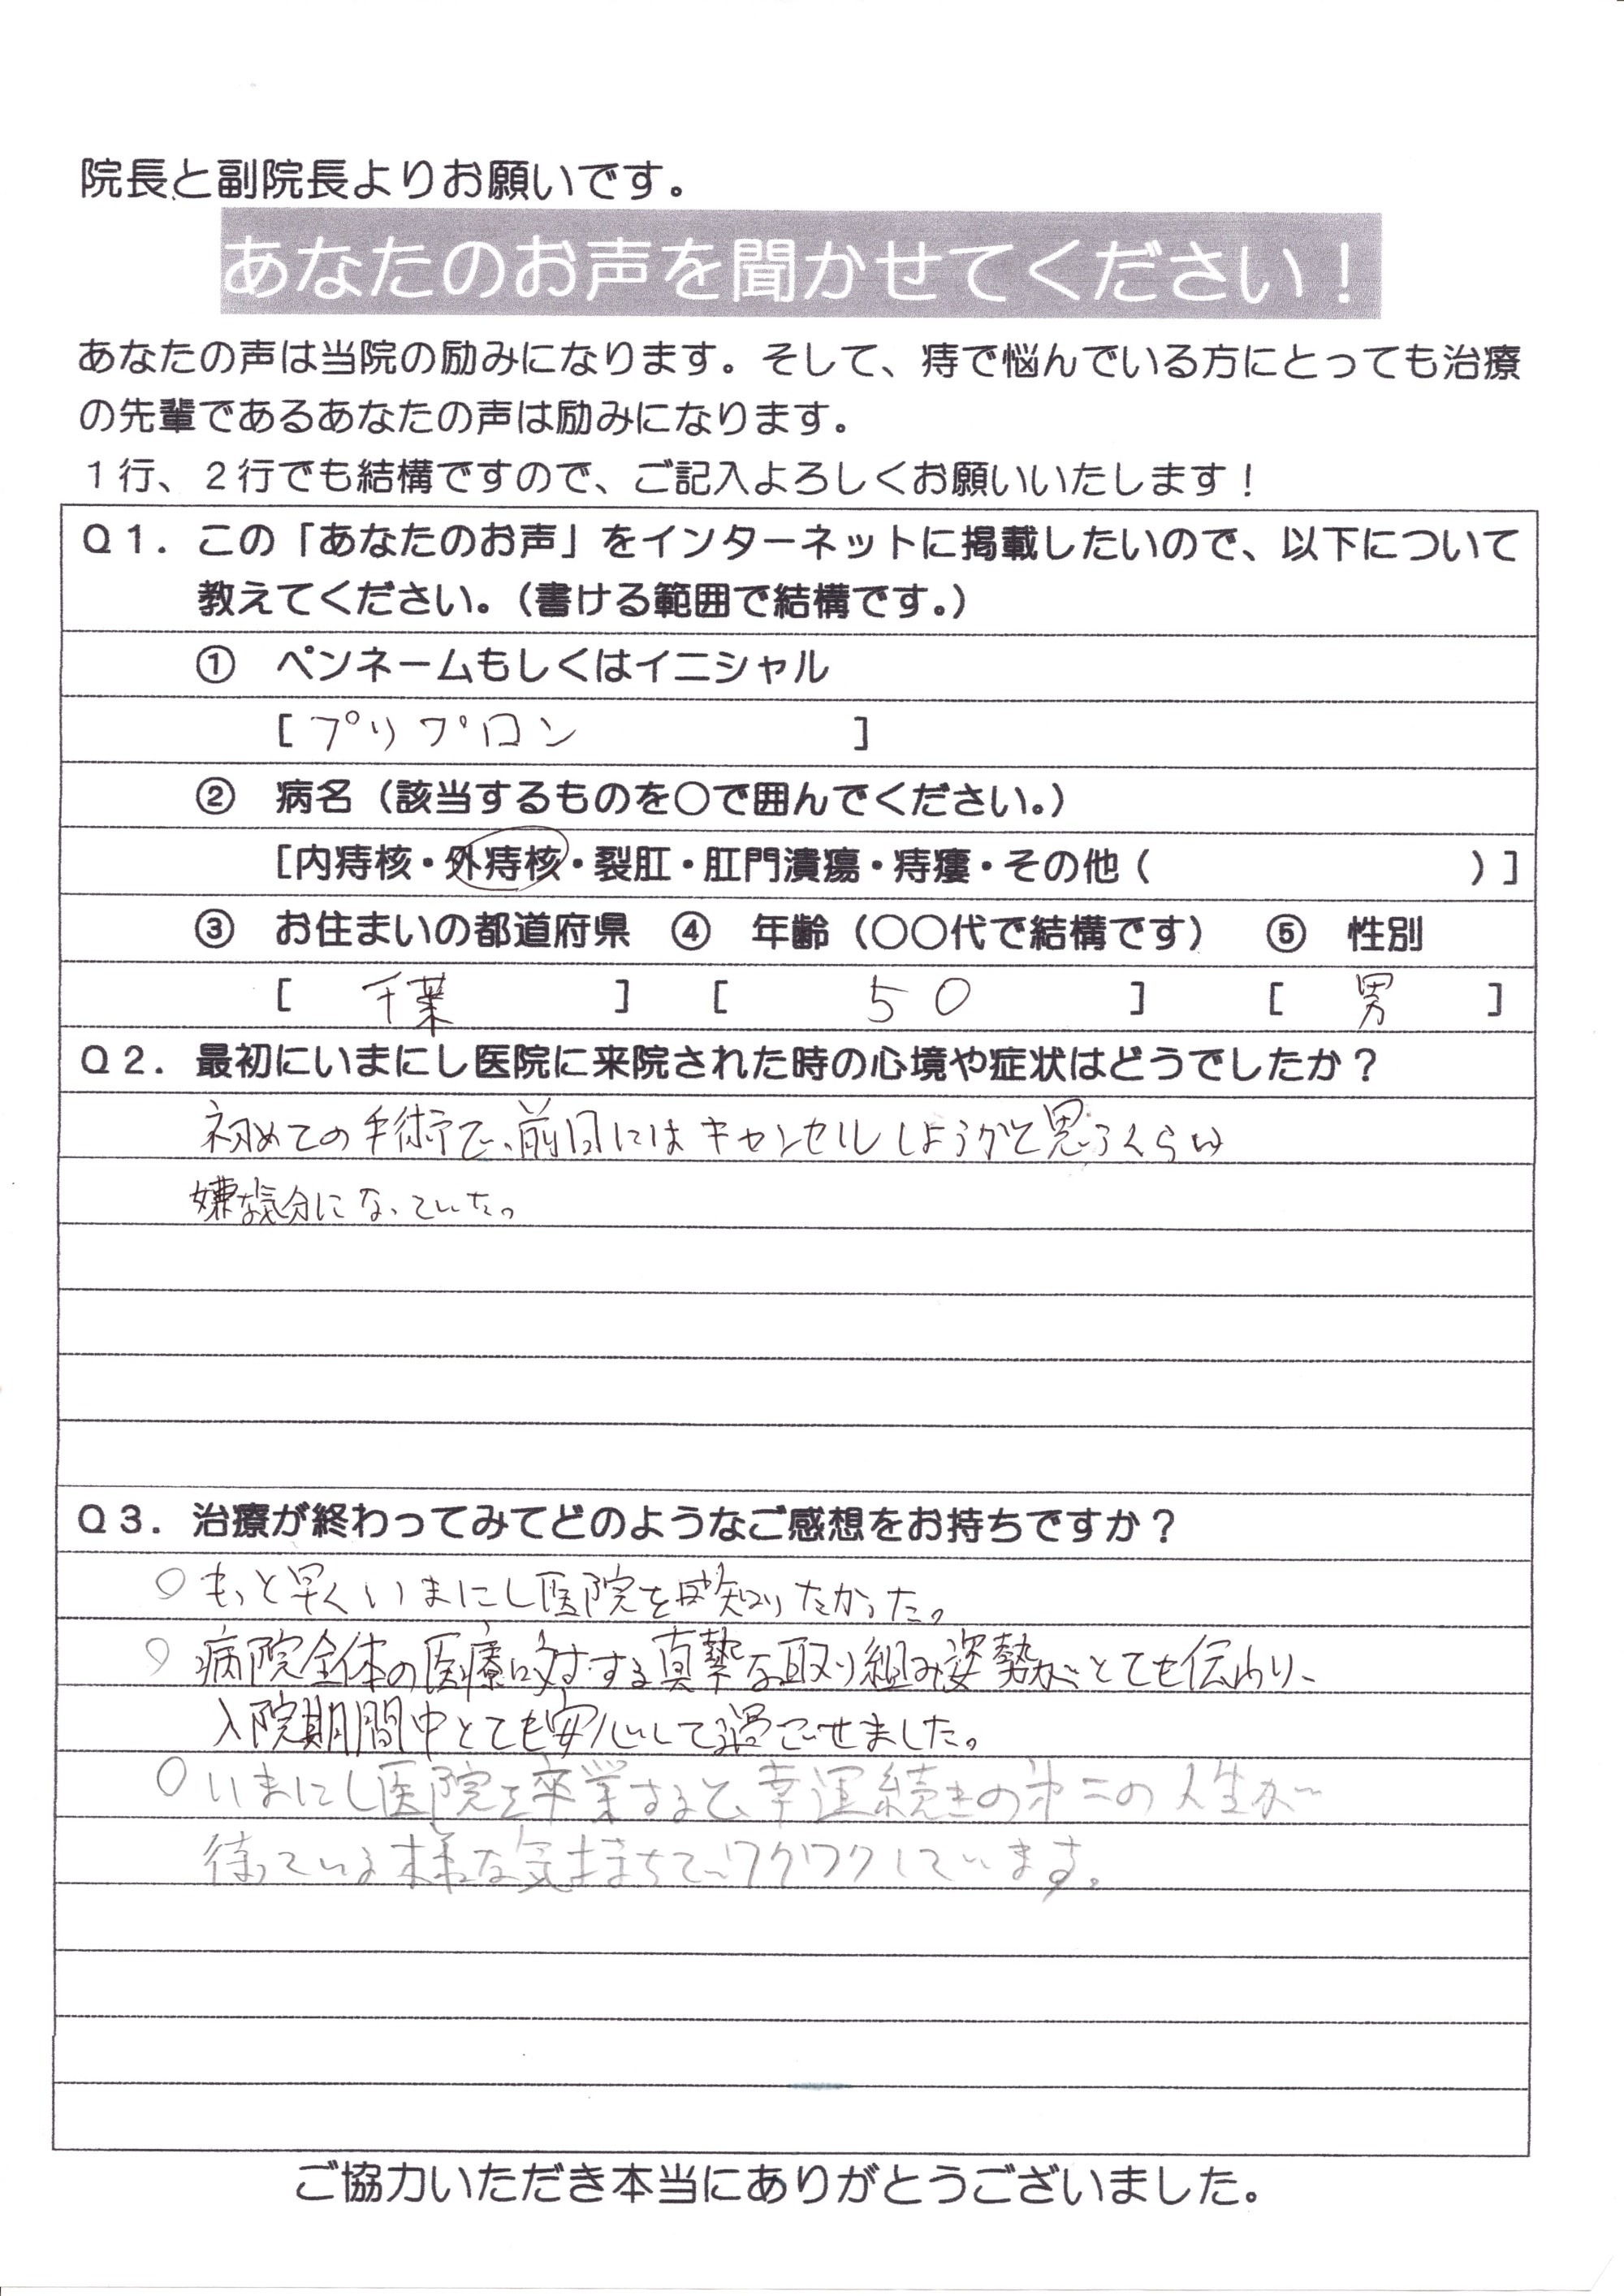 院長と副院長よりお願いです。
あなたのお声を聞かせてください！
あなたの声は当院の励みになります。そして、痔で悩んでいる方にとっても治療
の先輩であるあなたの声は励みになります。
１行、２行でも結構ですので、ご記入よろしくお願いいたします！
Ｑ１．この「あなたのお声」をインターネットに掲載したいので、以下について
教えてください。（書ける範囲で結構です。）
①　ペンネームもしくはイニシャル
[ プリプロン ]
②　病名（該当するものを○で囲んでください。）
[内痔核・外痔核・裂肛・肛門潰瘍・痔瘻・その他（　　　）]
③　お住まいの都道府県　④　年齢（○○代で結構です）　⑤　性別
[ 千葉 ] [ ５０ ] [ 男 ]
Ｑ２．最初にいまにし医院に来院された時の心境や症状はどうでしたか？
初めての手術で、前日にはキャンセルしようかと思うくらい
嫌な気分になっていた。
Ｑ３．治療が終わってみてどのようなご感想をお持ちですか？
○もっと早くいまにし医院を知りたかった。
○病院全体の医療に対する真摯な取り組み姿勢がとても伝わり、
入院期間中とても安心して過ごせました。
○いまにし医院を卒業すると、幸運続きの第二の人生が
待っている様な気持ちでワクワクしています。
ご協力いただき本当にありがとうございました。